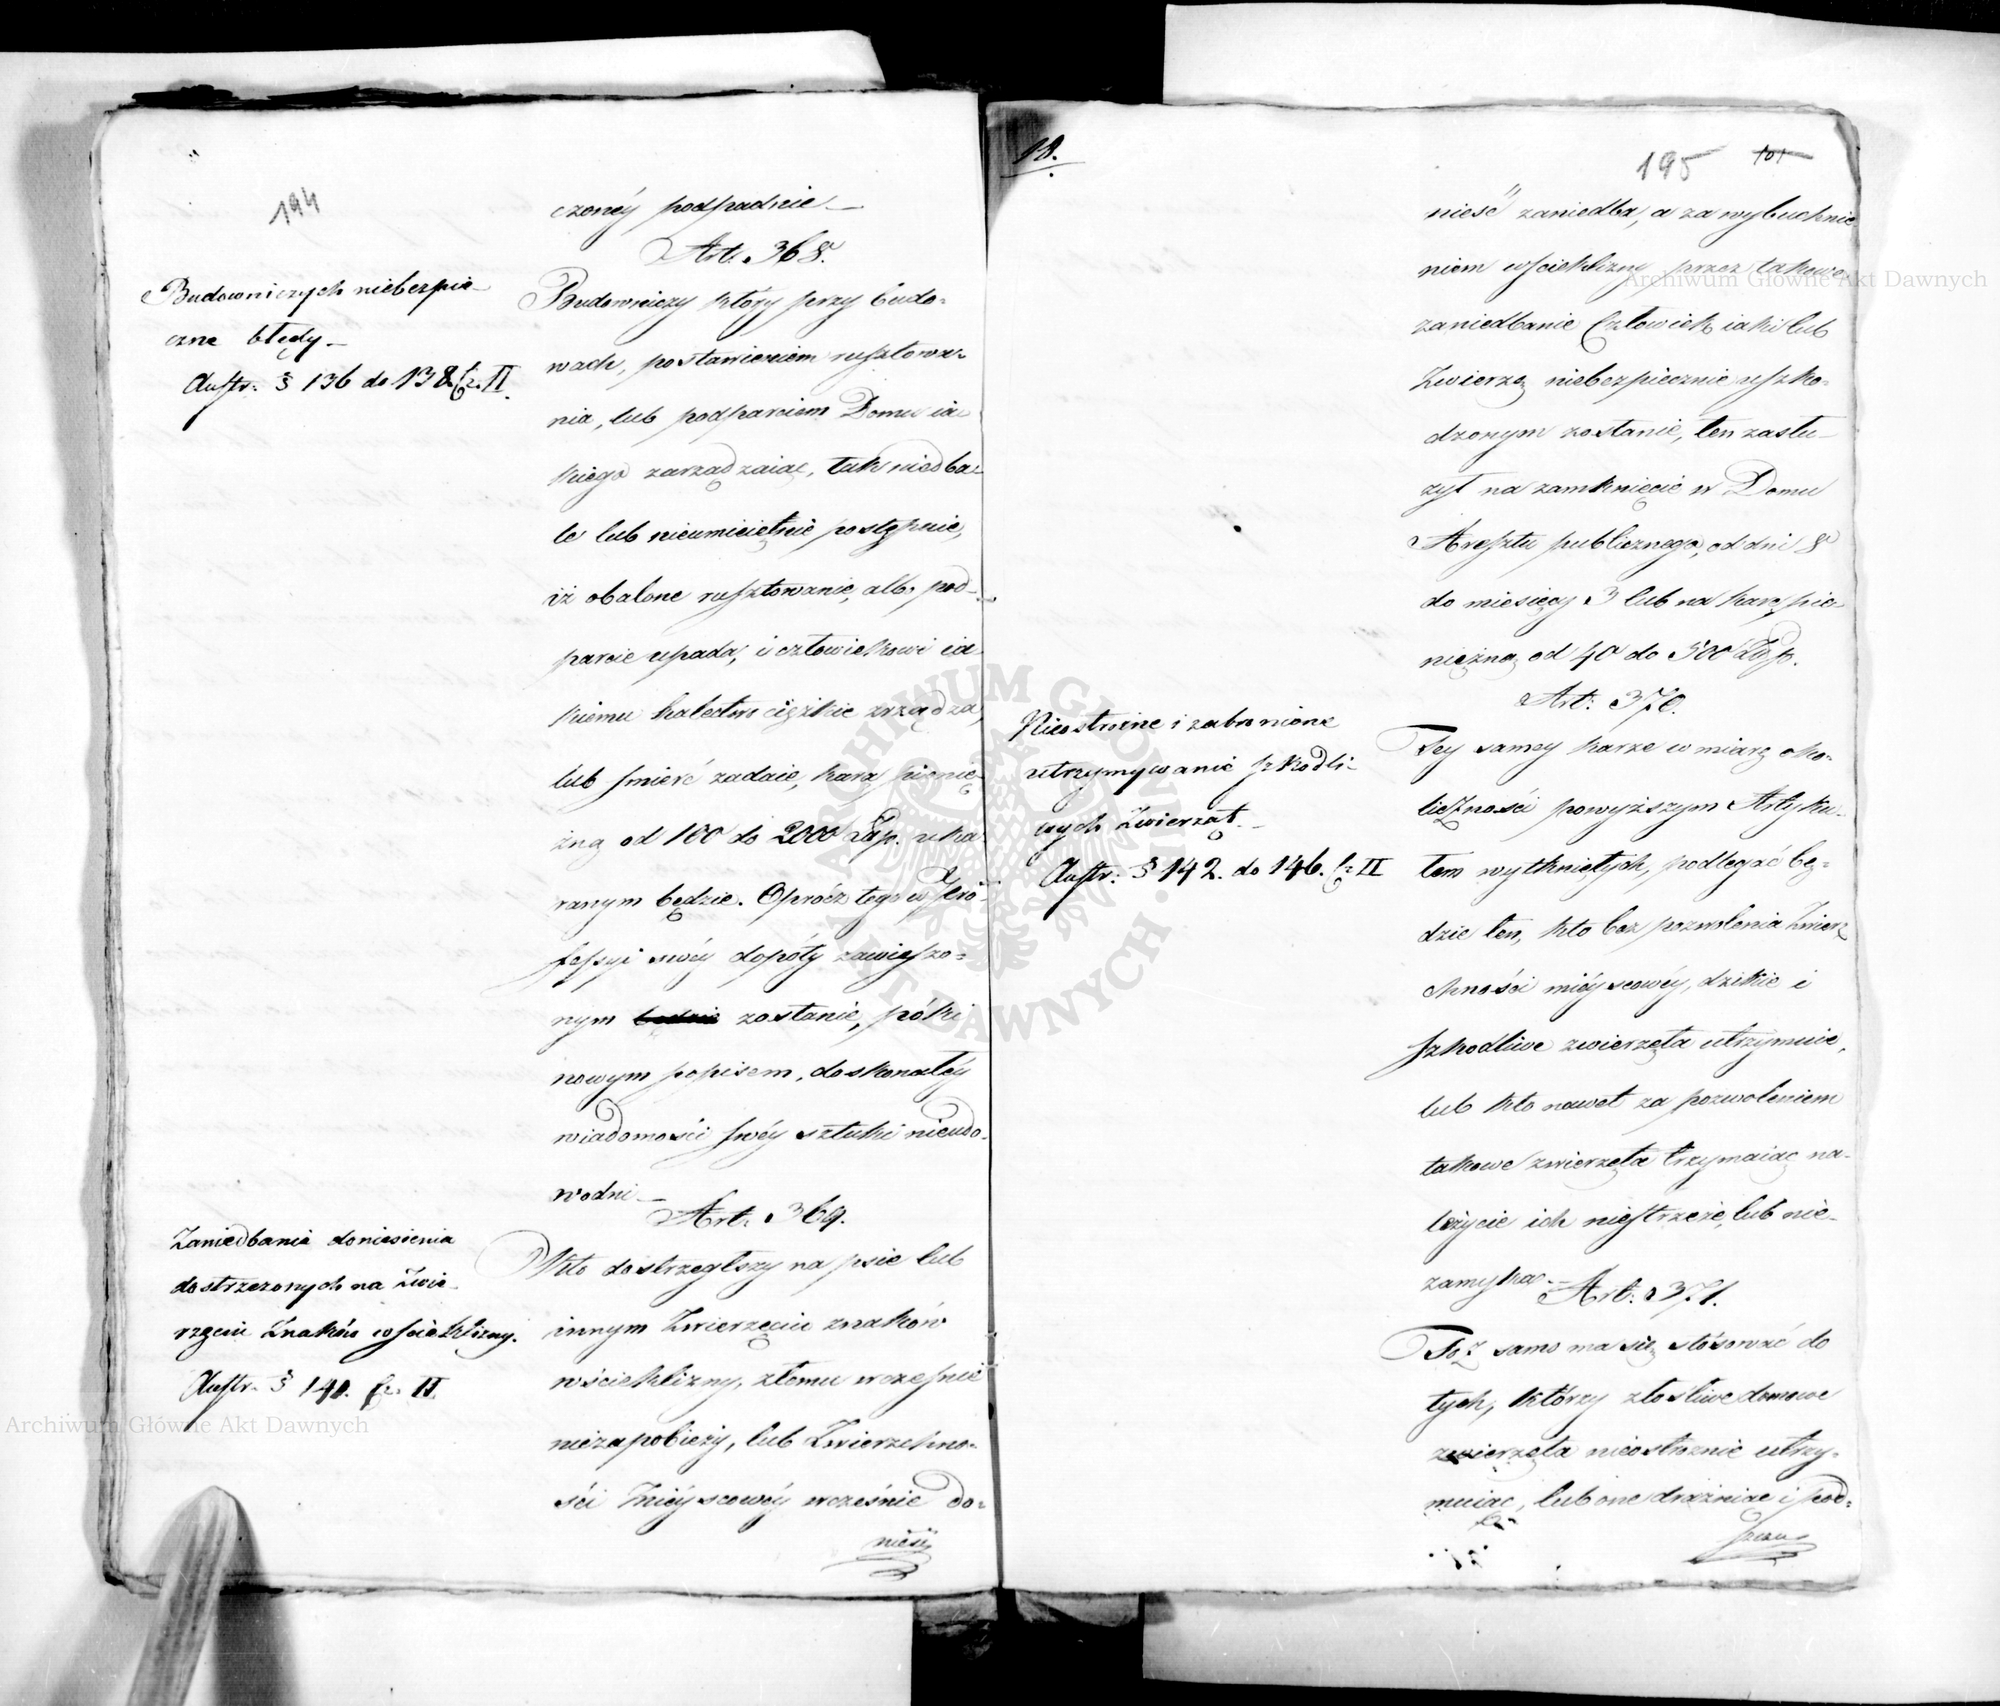 194
czonéy podpadnie. —
Art. 368.
Budowniczych niebezpie-
czne błędy —
Austr: § 136 do 138. Cz. II.
Budowniczy który przy budo-
wach, postawieniem rusztowa-
nia, lub podparciem Domu ia-
kiego zarządzaiąc, tak niedba-
le lub nieumieiętnie postąpnie,
iż obalone rusztowanie, albo pod-
parcie upada, i człowiekowi ia-
kiemu kalectwo ciężkie zrządza,
lub śmierć zadaie, karą pienię-
żną od 100 do 2000 Złp. uka-
ranym będzie. Oprócz tego w Pro-
fessyi swéy dopóty zawieszo-
nym będzie zostanie, póki
nowym popisem, doskonałéy
wiadomości swéy sztuki nieudo-
wodni —
Art. 369.
Zaniedbania doniesienia
dostrzeżonych na Zwie-
rzęciu Znaków wścieklizny.
Austr. § 141. Cz. II.
Kto dostrzegłszy na psie lub
innym Zwierzęciu znaków
wścieklizny, złemu wcześnie
niezapobieży, lub Zwierzchno-
ści Mieyscowéy wcześnie do-
nieść
18.
195 101
nieść zaniedba, a za wybuchnie
niem wścieklizny przez takowe
zaniedbanie Człowiek iaki lub
Zwierzę niebezpiecznie uszko-
dzonym zostanie, ten zasłu-
żył na zamknięcie w Domu
Aresztu publicznego, od dni 8
do miesięcy 3 lub na karę pie-
niężną od 40 do 500 Złp.
Art: 370.
Nieostrożne i zabronione
utrzymywanie szkodli-
wych Zwierząt. —
Austr: § 142. do 146. Cz. II
Tey samey karze w miarę oko-
liczności powyższym Artyku-
łem wytkniętych, podlegać bę-
dzie ten, kto bez pozwolenia Zwierz
chności miéyscowéy, dzikie i
szkodliwe zwierzęta utrzymuie,
lub kto nawet za pozwoleniem
takowe zwierzęta trzymaiąc na-
leżycie ich niestrzeże, lub nie-
zamyka. —
Art: 371.
Toż samo ma się stósować do
tych, którzy złośliwe domowe
zwierzęta nieostrożnie utrzy-
muiąc, lub one drażniąc i pod-
szczu
Archiwum Główne Akt Dawnych
Archiwum Główne Akt Dawnych
ARCHIWUM GŁÓWNE AKT DAWNYCH